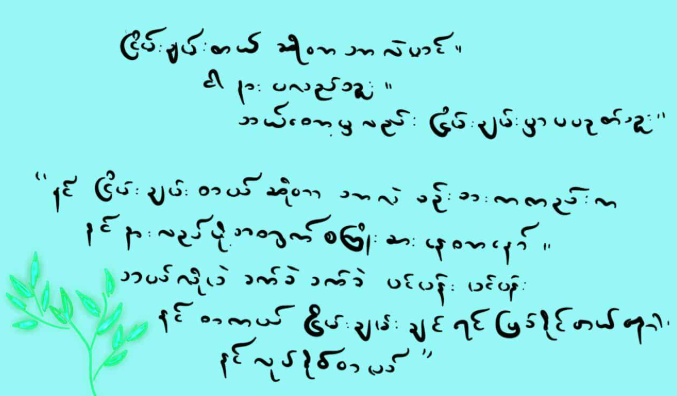 ငြိမ်းချမ်းတယ် ဆိုတာ ဘာလဲဟင်။
ငါ နား မလည်ဘူး။
ဘယ်တော့မှ လည်း ငြိမ်းချမ်းမှာ မဟုတ်ဘူး။
"နင် ငြိမ်းချမ်း တယ် ဆိုတာ ဘာလဲ
နင် နားလည်ဖို့ အတွက် စကြိုးစား နေတာနော်။
ဘယ်လိုပဲ ခက်ခဲ ခက်ခဲ ပင်ပန်း ပင်ပန်း
နင် တကယ် ငြိမ်းချမ်း ချင် ရင် ဖြစ်နိုင်တယ်
နင် လုပ်နိုင်တယ်"